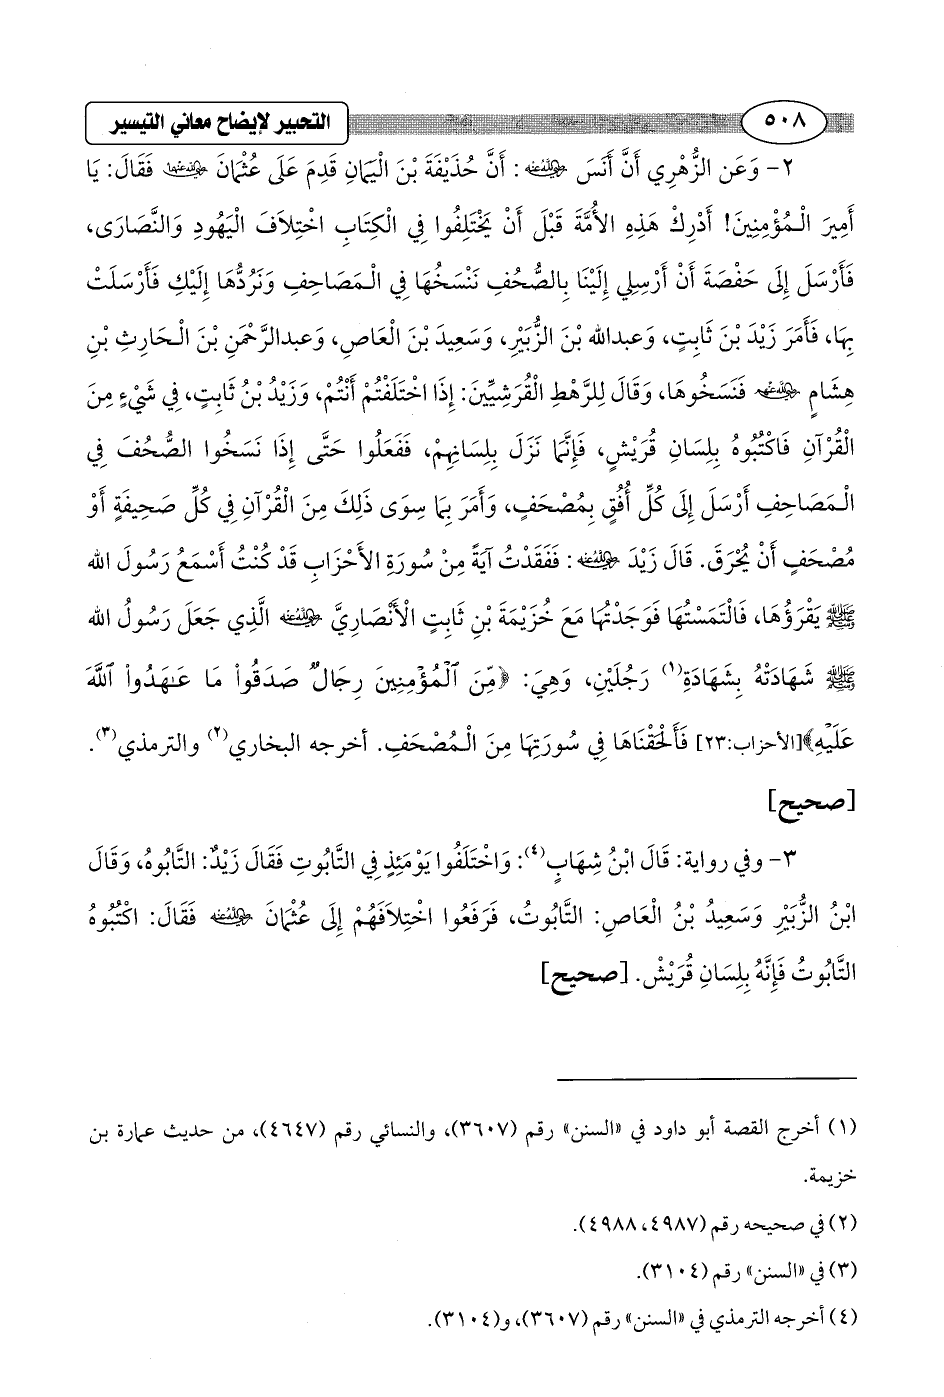 ٥٠٨
التحبير لإيضاح معاني التيسير
٢- وَعَن الزُّهْرِي أَنَّ أَنَسَ رضي الله عنه: أَنَّ حُذَيْفَةَ بْنَ الْيَمَانِ قَدِمَ عَلَى عُثْمَانَ رضي الله عنهما فَقَالَ: يَا
أَمِيرَ الْمُؤْمِنِينَ! أَدْرِكْ هَذِهِ الأُمَّةَ قَبْلَ أَنْ يَخْتَلِفُوا فِي الْكِتَابِ اخْتِلاَفَ الْيَهُودِ وَالنَّصَارَى،
فَأَرْسَلَ إِلَى حَفْصَةَ أَنْ أَرْسِلِي إِلَيْنَا بِالصُّحُفِ نَنْسَخُهَا فِي الْمَصَاحِفِ وَنَرُدُّهَا إِلَيْكِ فَأَرْسَلَتْ
بِهَا، فَأَمَرَ زَيْدَ بْنَ ثَابِتٍ، وَعبدالله بْنَ الزُّبَيْرِ، وَسَعِيدَ بْنَ الْعَاصِ، وَعبدالرَّحْمَنِ بْنَ الْحَارِثِ بْنِ
هِشَامٍ رضي الله عنهم فَنَسَخُوهَا، وَقَالَ لِلرَّهْطِ الْقُرَشِيِّينَ: إِذَا اخْتَلَفْتُمْ أَنْتُمْ، وَزَيْدُ بْنُ ثَابِتٍ، فِي شَيْءٍ مِنَ
الْقُرْآنِ فَاكْتُبُوهُ بِلِسَانِ قُرَيْشٍ، فَإِنَّمَا نَزَلَ بِلِسَانِهِمْ، فَفَعَلُوا حَتَّى إِذَا نَسَخُوا الصُّحُفَ فِي
الْمَصَاحِفِ أَرْسَلَ إِلَى كُلِّ أُفُقٍ بِمُصْحَفٍ، وَأَمَرَ بِمَا سِوَى ذَلِكَ مِنَ الْقُرْآنِ فِي كُلِّ صَحِيفَةٍ أَوْ
مُصْحَفٍ أَنْ يُحْرَقَ. قَالَ زَيْدَ رضي الله عنه: فَفَقَدْتُ آيَةً مِنْ سُورَةِ الأَحْزَابِ قَدْ كُنْتُ أَسْمَعُ رَسُولَ الله
ﷺ يَقْرَؤُهَا، فَالْتَمَسْتُهَا فَوَجَدْتُهَا مَعَ خُزَيْمَةَ بْنِ ثَابِتٍ الْأَنْصَارِيَّ رضي الله عنه الَّذِي جَعَلَ رَسُولُ الله
ﷺ شَهَادَتْهُ بِشَهَادَةِ(١) رَجُلَيْنِ، وَهِيَ: ﴿مِّنَ ٱلْمُؤْمِنِينَ رِجَالٌ صَدَقُواْ مَا عَٰهَدُواْ ٱللَّهَ
عَلَيْهِ﴾[الأحزاب:٢٣] فَأَلْحَقْنَاهَا فِي سُورَتِهَا مِنَ الْمُصْحَفِ. أخرجه البخاري(٢) والترمذي(٣).
[صحيح]
٣- وفي رواية: قَالَ ابْنُ شِهَابٍ(٤): وَاخْتَلَفُوا يَوْمَئِذٍ فِي التَّابُوتِ فَقَالَ زَيْدٌ: التَّابُوهُ، وَقَالَ
ابْنُ الزُّبَيْرِ وَسَعِيدُ بْنُ الْعَاصِ: التَّابُوتُ، فَرَفَعُوا اخْتِلاَفَهُمْ إِلَى عُثْمَانَ رضي الله عنه فَقَالَ: اكْتُبُوهُ
التَّابُوتُ فَإِنَّهُ بِلِسَانِ قُرَيْشْ. [صحيح]
(١) أخرج القصة أبو داود في «السنن» رقم (٣٦٠٧)، والنسائي رقم (٤٦٤٧)، من حديث عمارة بن
خزيمة.
(٢) في صحيحه رقم (٤٩٨٧، ٤٩٨٨).
(٣) في «السنن» رقم (٣١٠٤).
(٤) أخرجه الترمذي في «السنن» رقم (٣٦٠٧)، و(٣١٠٤).